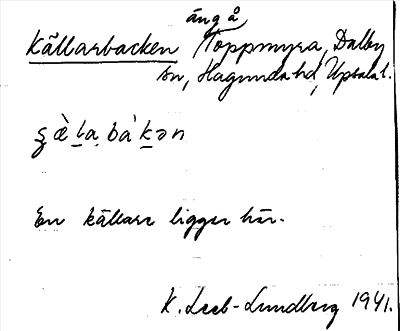 äng å
Källarbacken Toppmyra, Dalby
sn, Hagunda hd, Upsala l.
ʂæ̀ḷa bá'ḵən
En källare ligger här.
K. Leeb-Lundberg 1941.